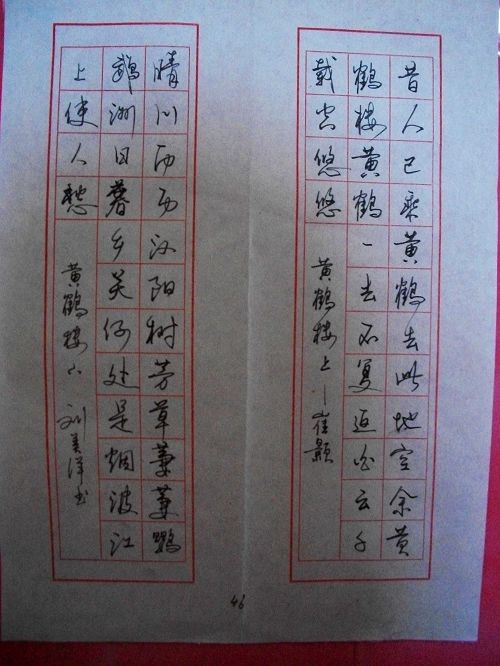 昔人已乘黄鹤去此地空余黄
鹤楼黄鹤一去不复返白云千
载空悠悠 黄鹤楼上—崔颢
晴川历历汉阳树芳草萋萋鹦
鹉洲日暮乡关何处是烟波江
上使人愁 黄鹤楼下 刘美洋书
46